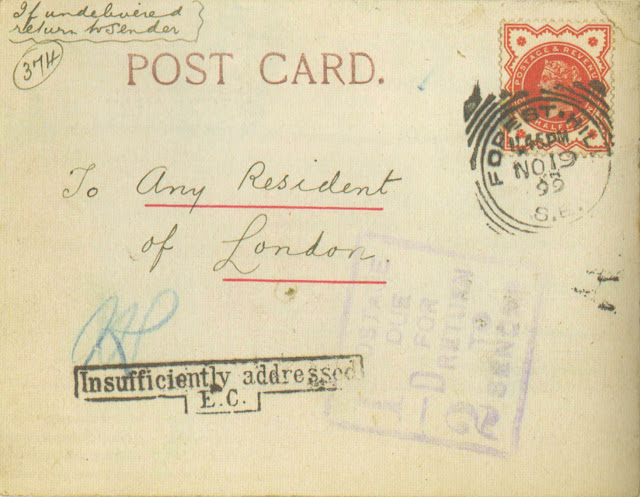 If undelivered
return to Sender
374
POST CARD.
POSTAGE & REVENUE
HALF
FOREST HILL
11.45PM
NO 19
99
S.E.
To Any Resident
of London.
Insufficiently addressed
E.C.
POSTAGE
DUE
FOR
RETURN
TO
SENDER
1
D
2